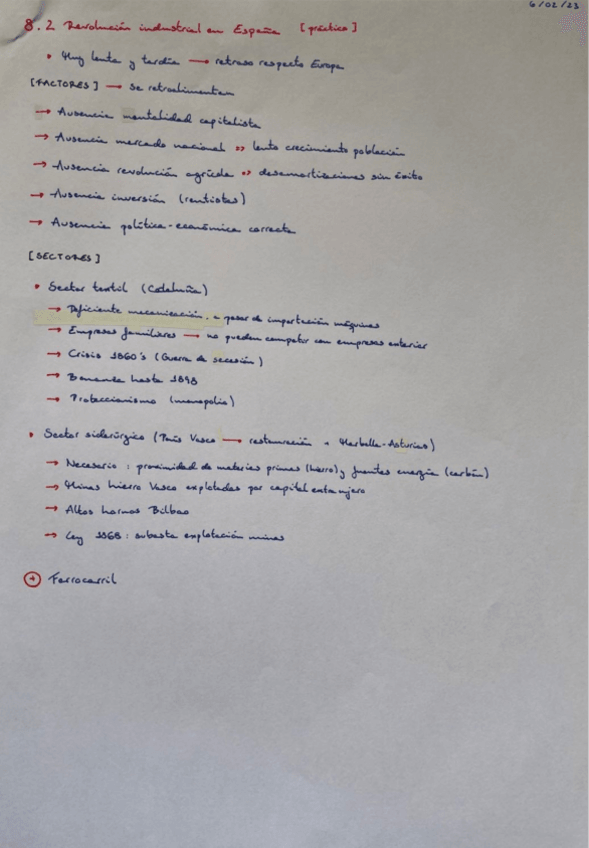 6/02/23
8.2 Revolución industrial en España [práctico]
• Muy lenta y tardía → retraso respecto Europa
[FACTORES] → se retroalimentan
→ Ausencia mentalidad capitalista
→ Ausencia mercado nacional » lento crecimiento población
→ Ausencia revolución agrícola » desamortizaciones sin éxito
→ Ausencia inversión (rentistas)
→ Ausencia política-económica correcta
[SECTORES]
• Sector textil (Cataluña)
→ Deficiente mecanización, a pesar de importación máquinas
→ Empresas familiares → no pueden competir con empresas exterior
→ Crisis 1860's (Guerra de secesión)
→ Bonanza hasta 1898
→ Proteccionismo (monopolio)
• Sector siderúrgico (País Vasco → restauración + Marbella-Asturias)
→ Necesario: proximidad de materias primas (hierro) y fuentes energía (carbón)
→ Minas hierro Vasco explotadas por capital extranjero
→ Altos hornos Bilbao
→ Ley 1868: subasta explotación minas
+ Ferrocarril